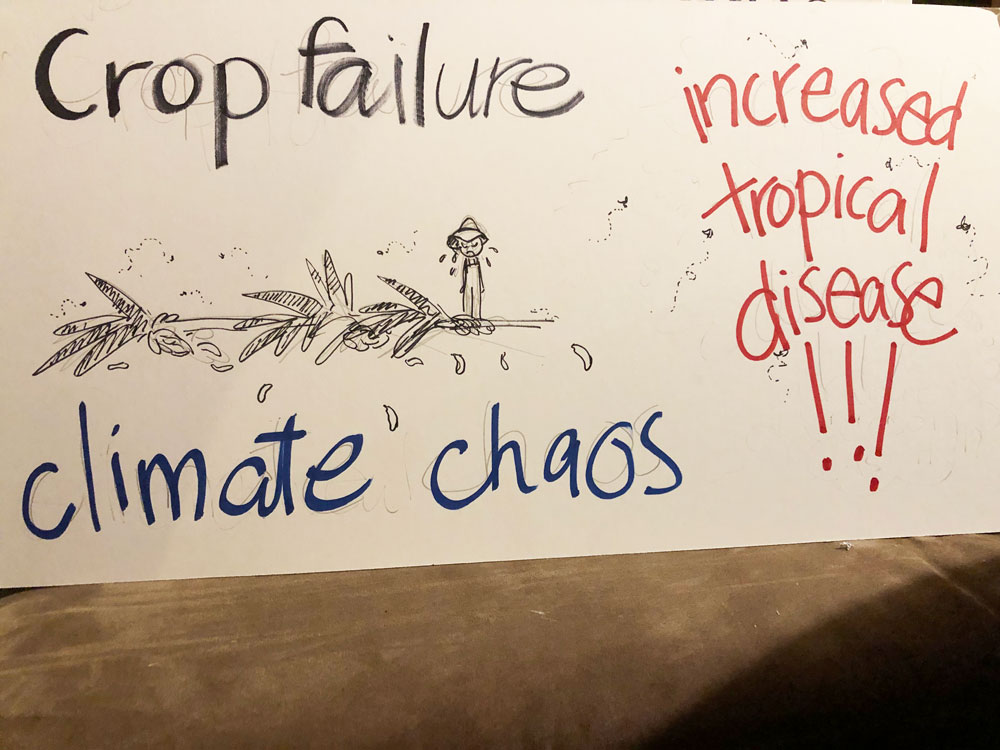 Crop failure
climate chaos
increased
tropical
disease
!!!